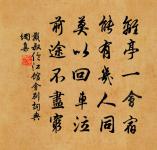 離亭一會宿
能有幾人同
莫以回車泣
前途不盡窮
戴叔倫江館會別詞典
網集